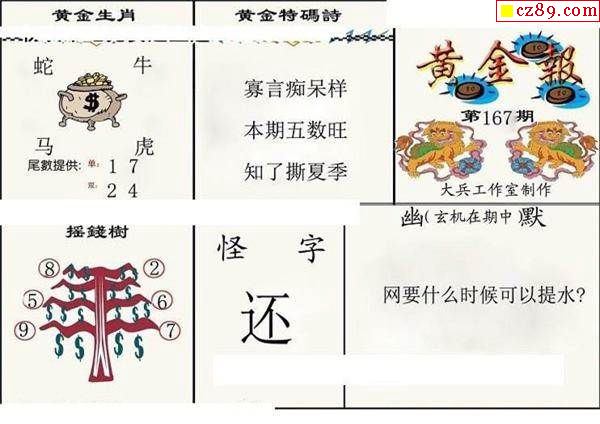 cz89.com
黄金生肖
蛇 牛
$
马 虎
尾數提供: 单: 1 7
双: 2 4
黄金特碼詩
寡言痴呆样
本期五数旺
知了撕夏季
黄金報
第167期
大兵工作室制作
摇錢樹
8 2
5 6
9 7
$ $ $ $ $ $ $ $ $
怪 字
还
幽(玄机在期中)默
网要什么时候可以提水?